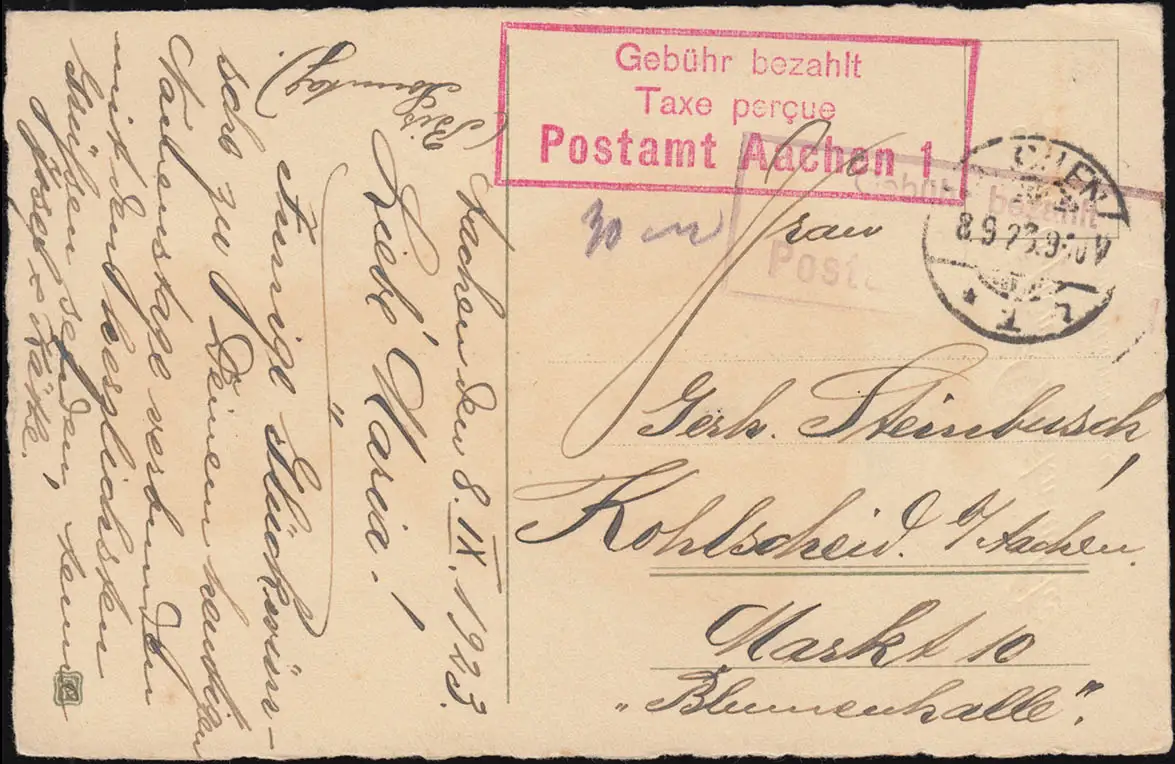 Gebühr bezahlt
Taxe perçue
Postamt Aachen 1
Gebühr bezahlt
Post
8.9.23.9
30 m
Frau
Gerh. Steinbusch
Kohlscheid. b/Aachen.
Markt 10
„Blumenhalle".
Aachen den 8. IX. 1923.
Liebe Maria!
Innige Glückwün-
sche zu Deinem heutigen
Namenstage verbunden
mit den herzlichsten
Grüßen senden,
Josef u Käthe.